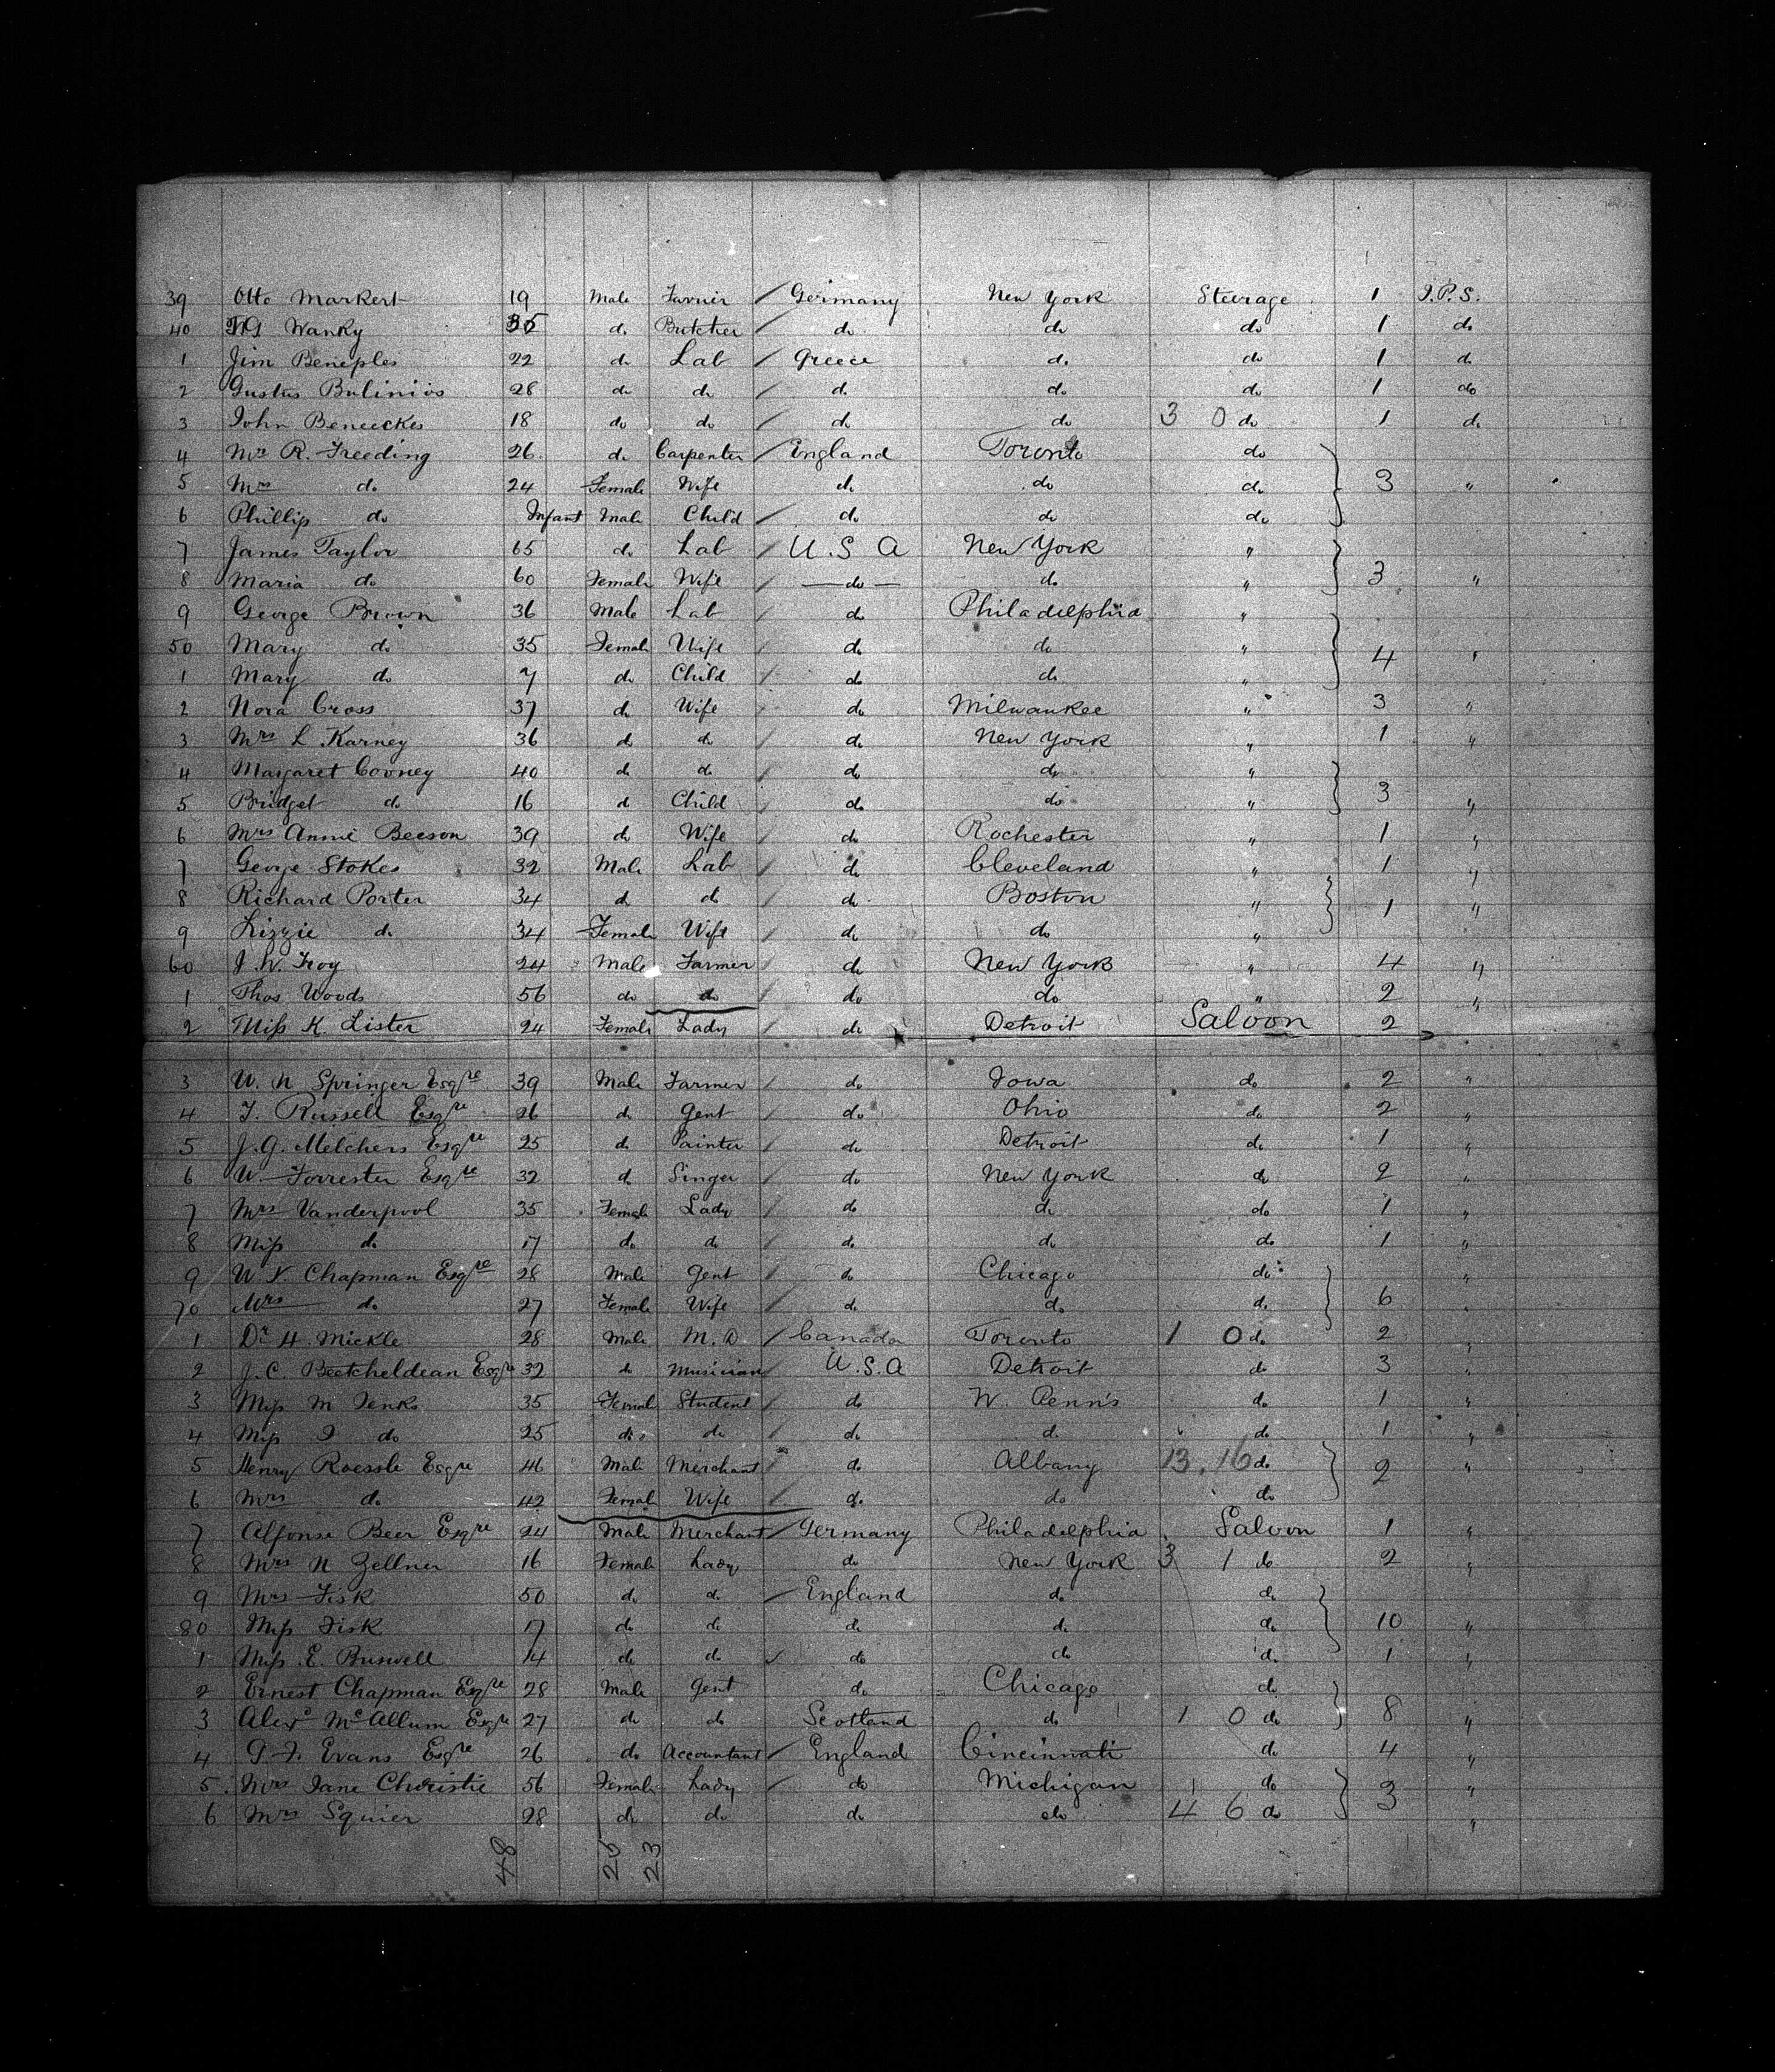 1
39 Otto Markert 19 Male Farrier / Germany New York Steerage 1 I.P.S.
40 Wanky 35 do Butcher / do do do 1 do
1 Jim Beneples 22 do Lab / Greece do do 1 do
2 Gustus Bulinios 28 do do / do do do 1 do
3 John Beneeckes 18 do do / do do 3 0 do 1 do
4 Mr R. Freeding 26 do Carpenter / England Toronto do
5 Mrs do 24 Female Wife do do do 3 "
6 Phillip do Infant Male Child / do do do
7 James Taylor 65 do Lab / U.S A New York "
8 Maria do 60 Female Wife / do do " 3 "
9 George Brown 36 Male Lab / do Philadelphia "
50 Mary do 35 Female Wife / do do "
1 Mary do 7 do Child / do do " 4 "
2 Nora Cross 37 do Wife do Milwaukee " 3 "
3 Mrs L. Karney 36 do do / do New York " 1 "
4 Margaret Cooney 40 do do / do do "
5 Bridget do 16 do Child / do do " 3 "
6 Mrs Annie Beeson 39 do Wife / do Rochester " 1 "
7 George Stokes 32 Male Lab / do Cleveland " 1 "
8 Richard Porter 34 do do / do Boston " 1 "
9 Lizzie do 34 Female Wife / do do "
60 J. W. Troy 24 Male Farmer / do New York " 4 "
1 Thos Woods 56 do do / do do " 2 "
2 Miss K. Lister 24 Female Lady / do Detroit Saloon 2
3 W. N Springer Esqre 39 Male Farmer / do Iowa do 2 "
4 T. Russell Esqre 26 do Gent / do Ohio do 2 "
5 J. G. Melchers Esqre 25 do Painter / do Detroit do 1 "
6 W. Forrester Esqre 32 do Singer / do New York do 2 "
7 Mrs Vanderpool 35 Female Lady / do do do 1 "
8 Miss do 17 do do / do do do 1 "
9 W. V. Chapman Esqre 28 Male Gent / do Chicago do "
70 Mrs do 27 Female Wife / do do do 6 "
1 Dr H. Mickle 28 Male M.D / Canada Toronto 1 0 do 2 "
2 J. C. Beetcheldean Esqre 32 do Musician U.S.A Detroit do 3 "
3 Miss M Jenks 35 Female Student / do W. Penn's do 1 "
4 Miss I do 25 do do / do do do 1 "
5 Henry Roessle Esqre 46 Male Merchant / do Albany 13. 16 do 2 "
6 Mrs do 42 Female Wife / do do do
7 Alfonse Beer Esqre 24 Male Merchant / Germany Philadelphia Saloon 1 "
8 Mrs N Zellner 16 Female Lady do New York 3 1 do 2 "
9 Mrs Fisk 50 do do / England do do
80 Miss Fisk 17 do do do do do 10 "
1 Miss E. Buswell 14 do do do do do 1 "
2 Ernest Chapman Esqre 28 Male Gent do Chicago do
3 Alexr McAllum Esqre 27 do do Scotland do 1 0 do 8 "
4 Evans Esqre 26 do Accountant / England Cincinnati do 4 "
5 Mrs Jane Christie 56 Female Lady / do Michigan do "
6 Mrs Squier 28 do do do do 4 6 do 3 "
48 25 23